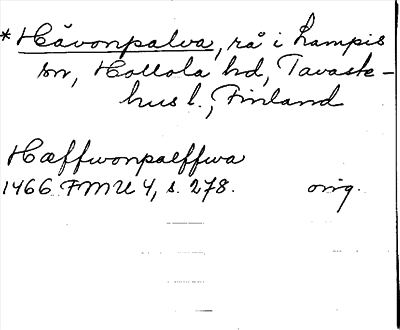 *Håvonpalva, rå i Lampis
sn, Hollola hd, Tavaste-
hus l., Finland
Hæffwonpaeffwa
1466 FMU 4, s. 278. orig.